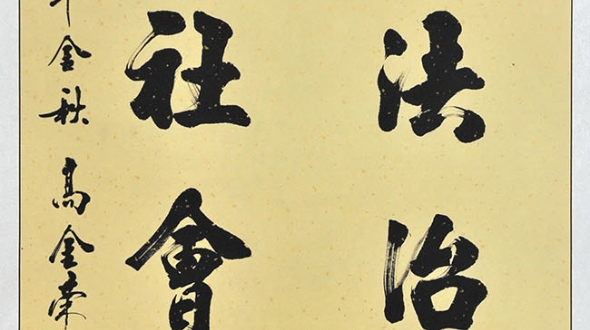 法治
社會
年金秋 高金榮